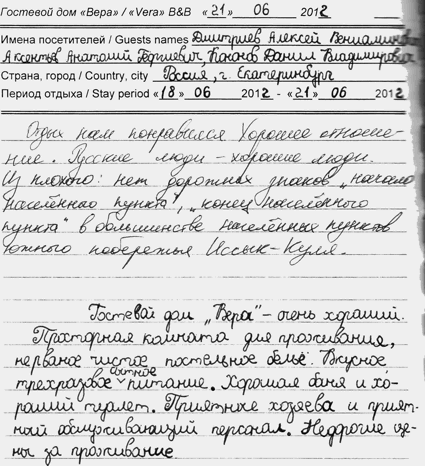 Гостевой дом «Вера» / «Vera» B&B «21» 06 2012
Имена посетителей / Guests names Дмитриев Алексей Вениаминович
Аксентьев Анатолий Георгиевич, Кананов Данил Владимирович
Страна, город / Country, city Россия, г. Екатеринбург
Период отдыха / Stay period «18» 06 2012 - «21» 06 2012
Отдых нам понравился Хорошее отноше-
ние. Русские люди - хорошие люди.
Из плохого: нет дорожных знаков „начало
населённого пункта", „конец населённого
пункта" в большинстве населённых пунктов
южного побережья Иссык-Куля.
Гостевой дом „Вера" - очень хороший.
Просторная комната для проживания,
нерваное чистое постельное бельё. Вкусное
трехразовое сытное питание. Хорошая баня и хо-
роший туалет. Приятные хозяева и прият-
ный обслуживающий персонал. Недорогие це-
ны за проживание